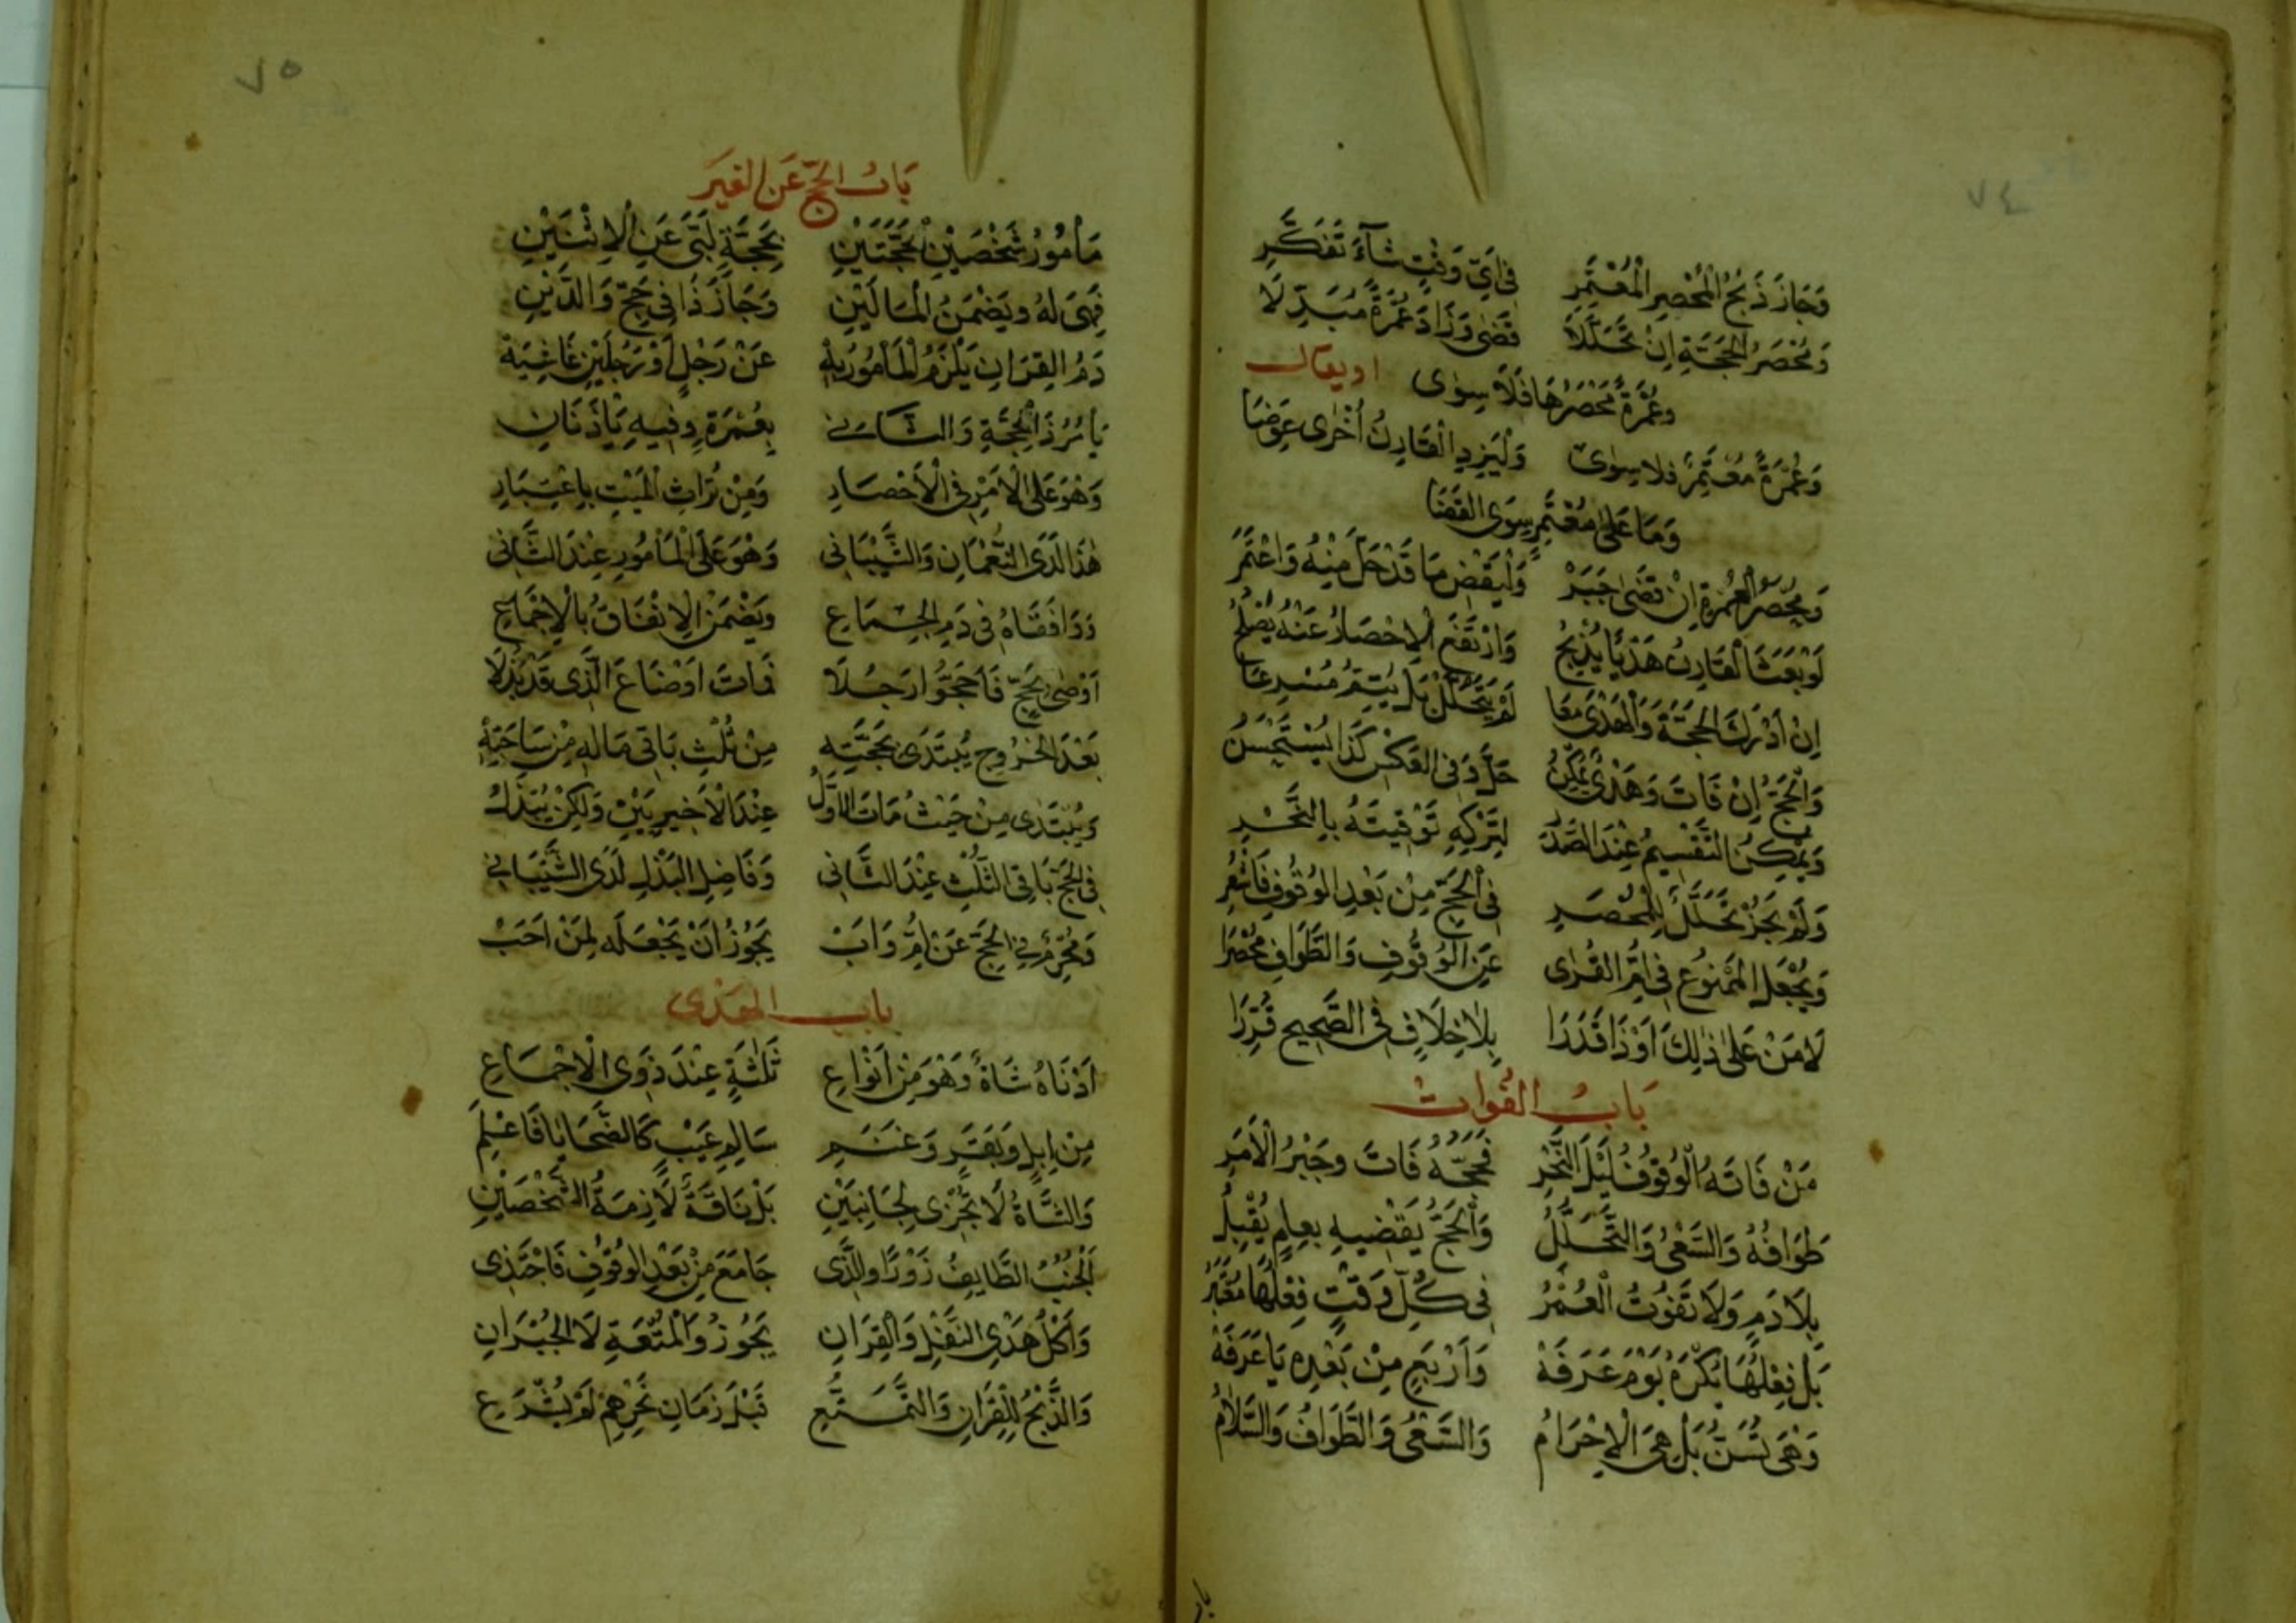 ٧٤
وَجَازَ ذَبْحُ الْمُحْصِرِ الْمُعْتَمِرِ فِي اَيِّ وَقْتٍ شَآءَ تَفَكَّرِ
وَمُحْصَرُ الْحَجَّةِ اِنْ تَحَلَّلاَ قَضٰى وَزَادَ عُمْرَةً مُبَدِّلَا
وعُمْرَةً مُحْصَرُهَا فَلَا سِوٰى او يقال
وَعُمْرَةً مُعْتَمِرٌ فلا سِوٰى وَلْيَزِدِ الْقَارِنُ اُخْرٰى عِوَضَا
وَمَا عَلٰى مُعْتَمِرٍ سِوَى القَضَا
وَمُحْصَرُ الْعُمْرَةِ اِنْ قَضٰى جَبَرْ وَلْيَقْضِ مَا قَدْ حَلَّ مِنْهُ وَاعْتَمَرْ
لَوْ بَعَثَ الْقَارِنُ هَدْيًا يُذْبَحُ وَارْتَفَعَ الْاِحْصَارُ عَنْهُ يُصْلِحُ
اِنْ اَدْرَكَ الحَجَّةَ وَالْهَدْىَ مَعَا لَمْ يَتَحَلَّلْ بَلْ يُتِمُّ مُسْرِعَا
وَالْحَجُّ اِنْ فَاتَ وَهَدْىٌ يُمْكِنُ حَلَّ وَفِي العَكْسِ كَذَا يُسْتَحْسَنُ
وَيُمْكِنُ التَّقْسِيمُ عِنْدَ الصَّدْرِ لِتَرْكِهِ تَوْقِيتَهُ بِالنَّحْرِ
وَلَمْ يَجُزْ تَحَلُّلٌ لِلْمُحْصَرِ فِي الْحَجِّ مِنْ بَعْدِ الوُقُوفِ فَاشْعُرِ
وَيُجْعَلُ الْمَمْنُوعُ فِي اُمِّ القُرٰى عَنِ الوُقُوفِ وَالطَّوَافِ مُحْصَرَا
لَا مَنْ عَلٰى ذٰلِكَ اَوْ ذَا قَدَرَا بِلَا خِلَافٍ فِي الصَّحِيحِ قُرِّرَا
بَابُ الفَوَات
مَنْ فَاتَهُ الْوُقُوفُ لَيْلَ النَّحْرِ فَحَجُّهُ فَاتَ وجَبْرُ الْاَمْرِ
طَوَافُهُ وَالسَّعْىُ وَالتَّحَلُّلُ وَالْحَجُّ يَقْضِيهِ بعامٍ يُقْبِلُ
بِلَا دَمٍ وَلَا تَفُوتُ الْعُمَرُ فِي كُلِّ وَقْتٍ فِعْلُهَا مُعْتَبَرُ
بَلْ فِعْلُهَا يُكْرَهُ يَوْمَ عَرَفَهْ وَاَرْبَعٍ مِنْ بَعْدِهِ يَا عَرَفَهْ
وَهْىَ تُسَنُّ بَلْ هِىَ الْاِحْرَامُ وَالسَّعْىُ وَالطَّوَافُ وَالسَّلَامُ
باب
٧٥
بَابُ الحَجِّ عَنِ الغَيرِ
مَأمُورُ شَخْصَيْنِ بحَجَّتَيْنِ بِحَجَّةٍ لَبَّى عَنِ الْاِثْنَيْنِ
فَهْىَ لَهُ ويَضْمَنُ الْمَالَيْنِ وَجَازَ ذَا فِي حَجِّ وَالدَيْنِ
دَمُ القِرَانِ يَلْزَمُ الْمَأمُورَ بِهْ عَنْ رَجُلٍ اَوْ رَجُلَيْنِ
يَامُرُ ذَا بِحَجَّةٍ وَالثَّانِي بِعُمْرَةٍ وفِيهِ يَأذَنَانِ
وَهْوَ عَلَى الْآمِرِ فِي الْاِحْصَارِ وَمِنْ تُرَاثِ الْمَيْتِ بِاعْتِبَارِ
هٰذَا لَدَى النُّعْمَانِ وَالشَّيْبَانِي وَهْوَ عَلَى الْمَأمُورِ عِنْدَ الثَّانِي
وَوَافَقَاهُ فِي دَمِ الْجِمَاعِ وَيَضْمَنُ الْاِنْفَاقَ بِالْاِجْمَاعِ
اَوْصٰى بِحَجٍّ فَاَحَجُّوا رَجُلَا فَمَاتَ اَوْ ضَاعَ الَّذِى قَدْ بَذَلَا
بَعْدَ الخُرُوجِ يُبْتَدٰى بحَجَّتِهِ مِنْ ثُلْثِ بَاقِي مَالِهِ مِنْ سَاحَتِهْ
وَيُبْتَدٰى مِنْ حَيْثُ مَاتَ الاَوَّلُ عِنْدَ الْاَخِيرَيْنِ وَلٰكِنْ يُبْذَلُ
فِي الْحَجِّ بَاقِي الثُّلْثِ عِنْدَ الثَّانِي وَفَاضِلُ البَذْلِ لَدَى الشَّيْبَانِي
وَمُحْرِمٌ فِي الحَجِّ عَنْ اُمٍّ وَاَبْ يَجُوزُ اَنْ يَجْعَلَه لِمَنْ اَحَبْ
باب الهَدْى
اَدْنَاهُ شَاةٌ وَهْوَ مِنْ اَنْوَاعِ ثَلٰثَةٍ عِنْدَ ذَوِى الْاِجْمَاعِ
مِنْ اِبِلٍ وَبَقَرٍ وَغَنَمِ سَالِمِ عَيْبٍ كَالضَّحَايَا فَاعْلَمِ
وَالشَّاةُ لَا تُجْزِى لِجَانِبَيْنِ بَلْ نَاقَةٌ لَازِمَةُ الشَّخْصَيْنِ
اَلْجُنُبُ الطَّايِفُ زَوْرًا والَّذِى جَامَعَ مِنْ بَعْدِ الوُقُوفِ فَاحْتَذِى
وَاَكْلُ هَدْىِ النَّفْلِ وَالْقِرَانِ يَجُوزُ وَالْمُتْعَةِ لَا الجُبْرَانِ
وَالذَّبْحُ لِلْقِرَانِ وَالتَّمَتُّعِ قَبْلَ زَمَانِ نَحْرِهِمْ لَمْ يُشْرَعِ